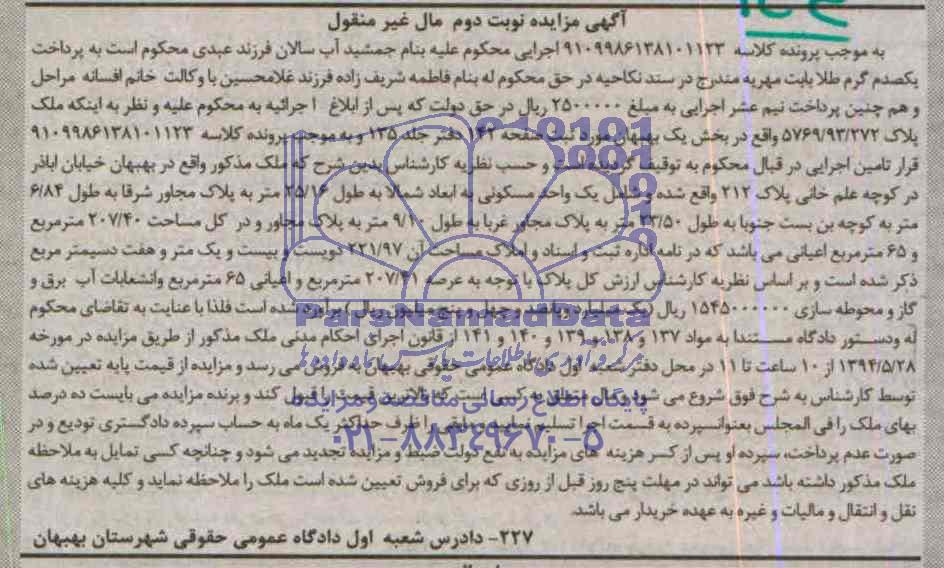 آگهی مزایده نوبت دوم مال غیر منقول
به موجب پرونده کلاسه ۹۱۰۹۹۸۶۱۳۸۱۰۱۱۲۳ اجرایی محکوم علیه بنام جمشید آب سالان فرزند عبدی محکوم است به پرداخت
یکصدم گرم طلا بابت مهریه مندرج در سند نکاحیه در حق محکوم له بنام فاطمه شریف زاده فرزند غلامحسین با وکالت خانم افسانه مراحل
و هم چنین پرداخت نیم عشر اجرایی به مبلغ ۲۵۰۰۰۰۰ ریال در حق دولت که پس از ابلاغ اجرائیه به محکوم علیه و نظر به اینکه ملک
پلاک ۵۷۶۹/۹۳/۲۷۲ واقع در بخش یک بهبهان مورد ثبت صفحه ۱۴۲ دفتر جلد ۱۳۵ و به موجب پرونده کلاسه ۹۱۰۹۹۸۶۱۳۸۱۰۱۱۲۳
قرار تامین اجرایی در قبال محکوم به توقیف گردیده است و حسب نظریه کارشناس بدین شرح که ملک مذکور واقع در بهبهان خیابان اباذر
در کوچه علم خانی پلاک ۲۱۲ واقع شده و شامل یک واحد مسکونی به ابعاد شمالا به طول ۲۵/۱۶ متر به پلاک مجاور شرقا به طول ۶/۸۴
متر به کوچه بن بست جنوبا به طول ۲۳/۵۰ متر به پلاک مجاور غربا به طول ۹/۱۰ متر به پلاک مجاور و در کل مساحت ۲۰۷/۴۰ مترمربع
و ۶۵ مترمربع اعیانی می باشد که در نامه اداره ثبت و اسناد و املاک مساحت آن ۲۲۱/۹۷ دویست و بیست و یک متر و هفت دسیمتر مربع
ذکر شده است و بر اساس نظریه کارشناس ارزش کل پلاک با توجه به عرصه ۲۰۷/۴۱ مترمربع و اعیانی ۶۵ مترمربع وانشعابات آب برق و
گاز و محوطه سازی ۱۵۴۵۰۰۰۰۰۰ ریال (یک میلیارد و پانصد و چهل و پنج میلیون ریال) برآورد شده است فلذا با عنایت به تقاضای محکوم
له ودستور دادگاه مستندا به مواد ۱۳۷ و ۱۳۸ و ۱۳۹ و ۱۴۰ و ۱۴۱ از قانون اجرای احکام مدنی ملک مذکور از طریق مزایده در مورخه
۱۳۹۴/۵/۲۸ از ۱۰ ساعت تا ۱۱ در محل دفتر شعبه اول دادگاه عمومی حقوقی بهبهان به فروش می رسد و مزایده از قیمت پایه تعیین شده
توسط کارشناس به شرح فوق شروع می شود و مال متعلق به کسی است که بالاترین قیمت را قبول کند و برنده مزایده می بایست ده درصد
بهای ملک را فی المجلس بعنوانسپرده به قسمت اجرا تسلیم نماید و مابقی را ظرف حداکثر یک ماه به حساب سپرده دادگستری تودیع و در
صورت عدم پرداخت، سپرده او پس از کسر هزینه های مزایده به نفع دولت ضبط و مزایده تجدید می شود و چنانچه کسی تمایل به ملاحظه
ملک مذکور داشته باشد می تواند در مهلت پنج روز قبل از روزی که برای فروش تعیین شده است ملک را ملاحظه نماید و کلیه هزینه های
نقل و انتقال و مالیات و غیره به عهده خریدار می باشد.
۲۲۷- دادرس شعبه اول دادگاه عمومی حقوقی شهرستان بهبهان
ParsNamadData
پایگاه اطلاع رسانی مناقصه و مزایده
۰۲۱-۸۸۳۴۹۶۷۰-۵